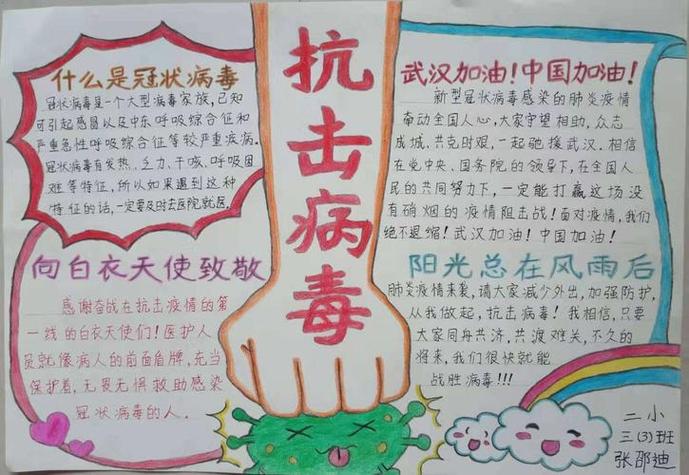 什么是冠状病毒
冠状病毒是一个大型病毒家族,已知
可引起感冒以及中东呼吸综合征和
严重急性呼吸综合征等较严重疾病。
冠状病毒有发热、乏力、干咳、呼吸困
难等特征,所以如果遇到这种
特征的话,一定要及时去医院就医。
向白衣天使致敬
感谢奋战在抗击疫情的第
一线的白衣天使们!医护人
员就像病人的前面盾牌,充当
保护着,无畏无惧救助感染
冠状病毒的人。
抗击病毒
武汉加油!中国加油!
新型冠状病毒感染的肺炎疫情
牵动全国人心,大家守望相助,众志
成城、共克时艰,一起驰援武汉.相信
在党中央、国务院的领导下,在全国人
民的共同努力下,一定能打赢这场没
有硝烟的疫情阻击战!面对疫情,我们
绝不退缩!武汉加油!中国加油!
阳光总在风雨后
肺炎疫情来袭,请大家减少外出,加强防护,
从我做起,抗击病毒!我相信,只要
大家同舟共济,共渡难关,不久的
将来,我们很快就能
战胜病毒!!!
二小
三(3)班
张邵迪